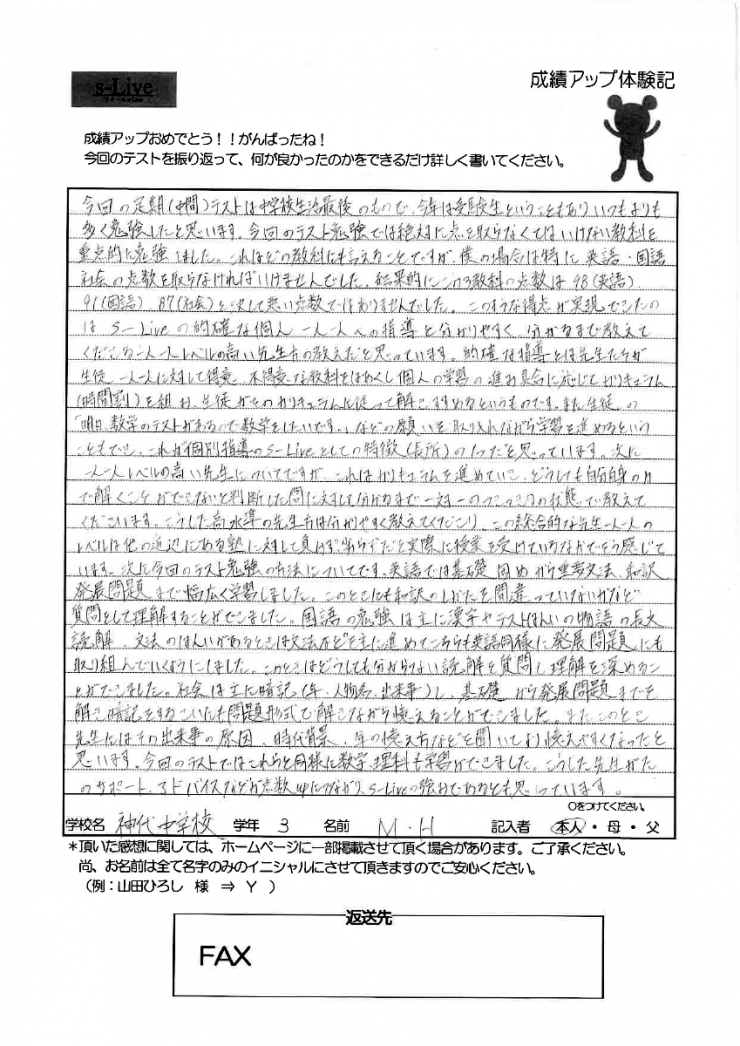 s-Live
成績アップ体験記
成績アップおめでとう！！がんばったね！
今回のテストを振り返って、何が良かったのかをできるだけ詳しく書いてください。
今回の定期(中間)テストは中学校生活最後のもので、今年は受験生ということもあり、いつもよりも
多く勉強したと思います。今回のテスト勉強では絶対に点を取らなくてはいけない教科を
重点的に勉強しました。これはどの教科にも言えることですが、僕の場合は特に英語・国語
社会の点数を取らなければいけませんでした。結果的にこの3教科の点数は98(英語)
91(国語) 87(社会)と決して悪い点数ではありませんでした。このような得点が実現できたの
は s-Liveの的確な個人一人一人への指導と分かりやすく、分かるまで教えて
くださる一人一人レベルの高い先生方の教えだと思っています。的確な指導とは先生たちが
生徒一人一人に対して得意、不得意な教科をはあくし個人の学習の進み具合に応じてカリキュラム
(時間割)を組み、生徒がそのカリキュラムに従って解きすすめるというものです。また生徒の
「明日、数学のテストがあるので数学をしたいです。」などの願いを取り入れながら学習を進めるという
こともでき、これが個別指導のs-Liveとしての特徴(長所)の1つだと思っています。次に
一人一人レベルの高い先生についてですが、これはカリキュラムを進めていき、どうしても自分自身の力
で解くことができないと判断した問に対しても分かるまで一対一のマンツーマンの状態で教えて
くださいます。こうした高水準の先生方は分かりやすく教えてくださり、この総合的な先生一人一人の
レベルは他の近辺にある塾に対して負けず劣らずだと実際に授業を受けているなかでそう感じて
います。次に今回のテスト勉強の方法についてです。英語では基礎固めから重要文法、和訳
発展問題まで幅広く学習しました。このときにも和訳のしかたを間違っていないかなど
質問をして理解することができました。国語の勉強は主に漢字やテストはんいの物語の長文
読解、文法のはんいがあるときは文法などを主に進めてこちらも英語同様に発展問題にも
取り組んでいくようにしました。このときはどうしても分からない読解を質問し理解を深めるこ
とができました。社会は主に暗記(年、人物名、出来事)し、基礎から発展問題までを
解き暗記をするといたも問題形式で解きながら憶えることができました。またこのとき
先生にはその出来事の原因、時代背景、年の憶え方などを聞いてより憶えやすくなったと
思います。今回のテストではこれらと同様に数学、理科も学習ができました。こうした先生がた
のサポート、アドバイスなどが点数upにつながり、s-Liveの強みであるとも思っています。
○をつけてください。
学校名 神代中学校 学年 3 名前 M・H 記入者 本人・母・父
＊頂いた感想に関しては、ホームページに一部掲載させて頂く場合があります。ご了承ください。
尚、お名前は全て名字のみのイニシャルにさせて頂きますのでご安心ください。
（例：山田ひろし 様 ⇒ Y ）
返送先
FAX